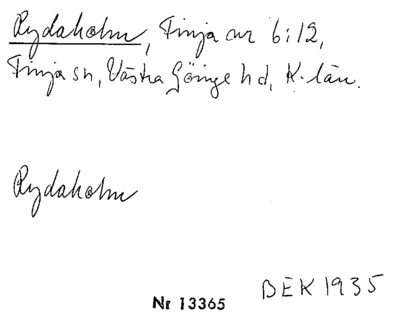 Rydaholm, Finja nr 6:12,
Finja sn, Västra Göinge hd, K-län.
Rydaholm
BEK 1935
Nr 13365